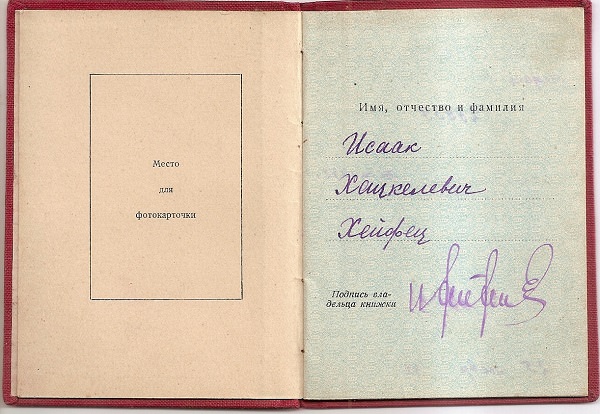 Место
для
фотокарточки
Имя, отчество и фамилия
Исаак
Хацкелевич
Хейфец
Подпись вла-
дельца книжки